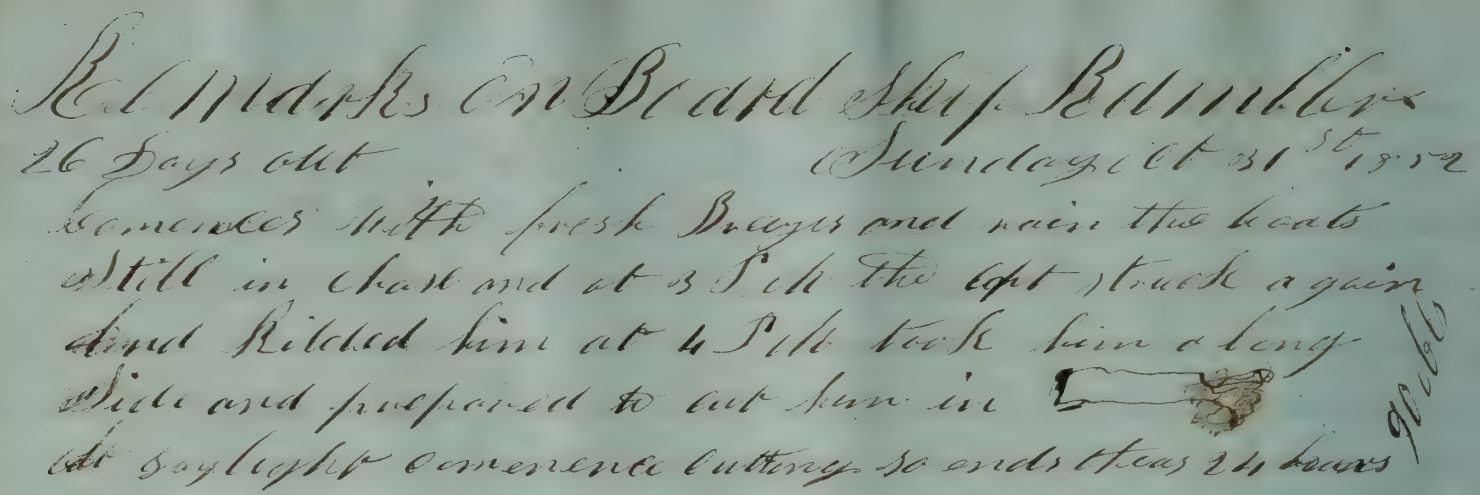 Remarks On Board Ship Rambler
26 Days out Sunday Oct 31st 1852
Comences with fresh Breezes and rain the boats
Still in chase and at 3 P M the Capt struck again
And Killded him at 4 P M took him along
Side and prepared to cut him in
At Daylight comenence cutting so ends theas 24 hours
90 bbl